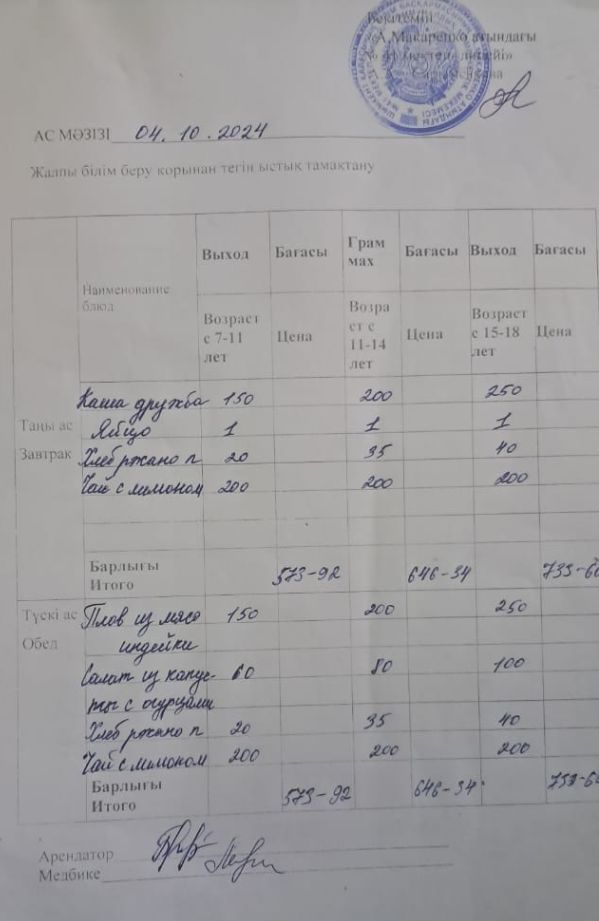 Бекітемін
«А.Макаренко атындағы
мектеп-лицейі»
АС МӘЗІЗІ 04.10.2024
Жалпы білім беру қорынан тегін ыстық тамақтану
Наименование блюд Выход Бағасы Грам мах Бағасы Выход Бағасы
Возраст с 7-11 лет Цена Возраст с 11-14 лет Цена Возраст с 15-18 лет Цена
Таңы ас
Завтрак
Каша дружба 150 200 250
Яйцо 1 1 1
Хлеб ржано п 20 35 40
Чай с лимоном 200 200 200
Барлығы
Итого 573-92 646-34 733-60
Түскі ас
Обед
Плов из мяса 150 200 250
индейки
Салат из капус- 60 80 100
ты с огурцами
Хлеб ржано п 20 35 40
Чай с лимоном 200 200 200
Барлығы
Итого 573-92 646-34
Арендатор
Медбике